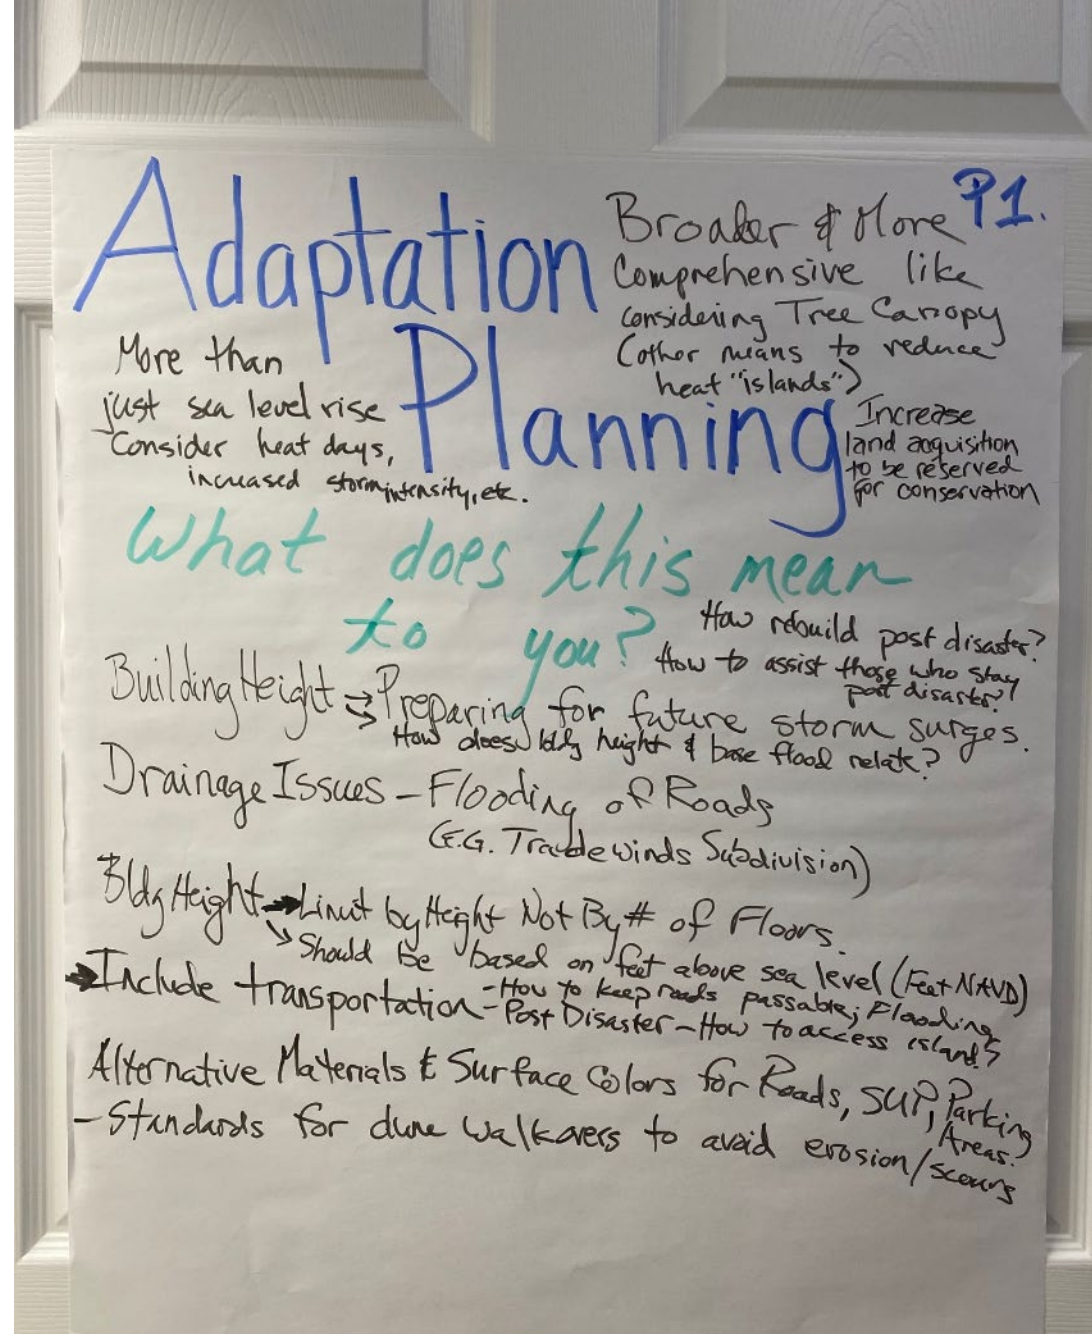 Adaptation
Planning
P1.
Broader & More
Comprehensive like
considering Tree Canopy
(other means to reduce
heat "islands")
More than
just sea level rise
Consider heat days,
increased storm intensity, etc.
Increase
land acquisition
to be reserved
for conservation
What does this mean
to you?
How rebuild post disaster?
How to assist those who stay
post disaster?
Building Height → Preparing for future storm surges.
How does bldg height & base flood relate?
Drainage Issues - Flooding of Roads
(E.G. Tradewinds Subdivision)
Bldg Height → Limit by Height Not By # of Floors.
↘ Should be based on feet above sea level (Feet NAVD)
→ Include transportation - How to keep roads passable; Flooding
- Post Disaster - How to access island?
Alternative Materials & Surface Colors for Roads, SUP, Parking
Areas.
- Standards for dune walkovers to avoid erosion/scours